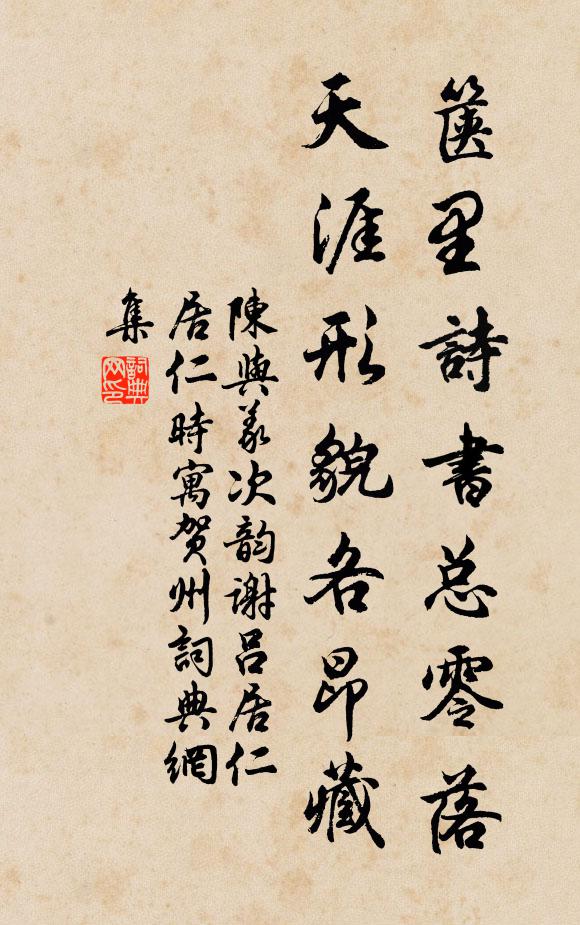 篋里詩書总零落
天涯形貌各昂藏
陳與義次韵謝吕居仁
居仁時寓贺州詞典網
集
詞典网印